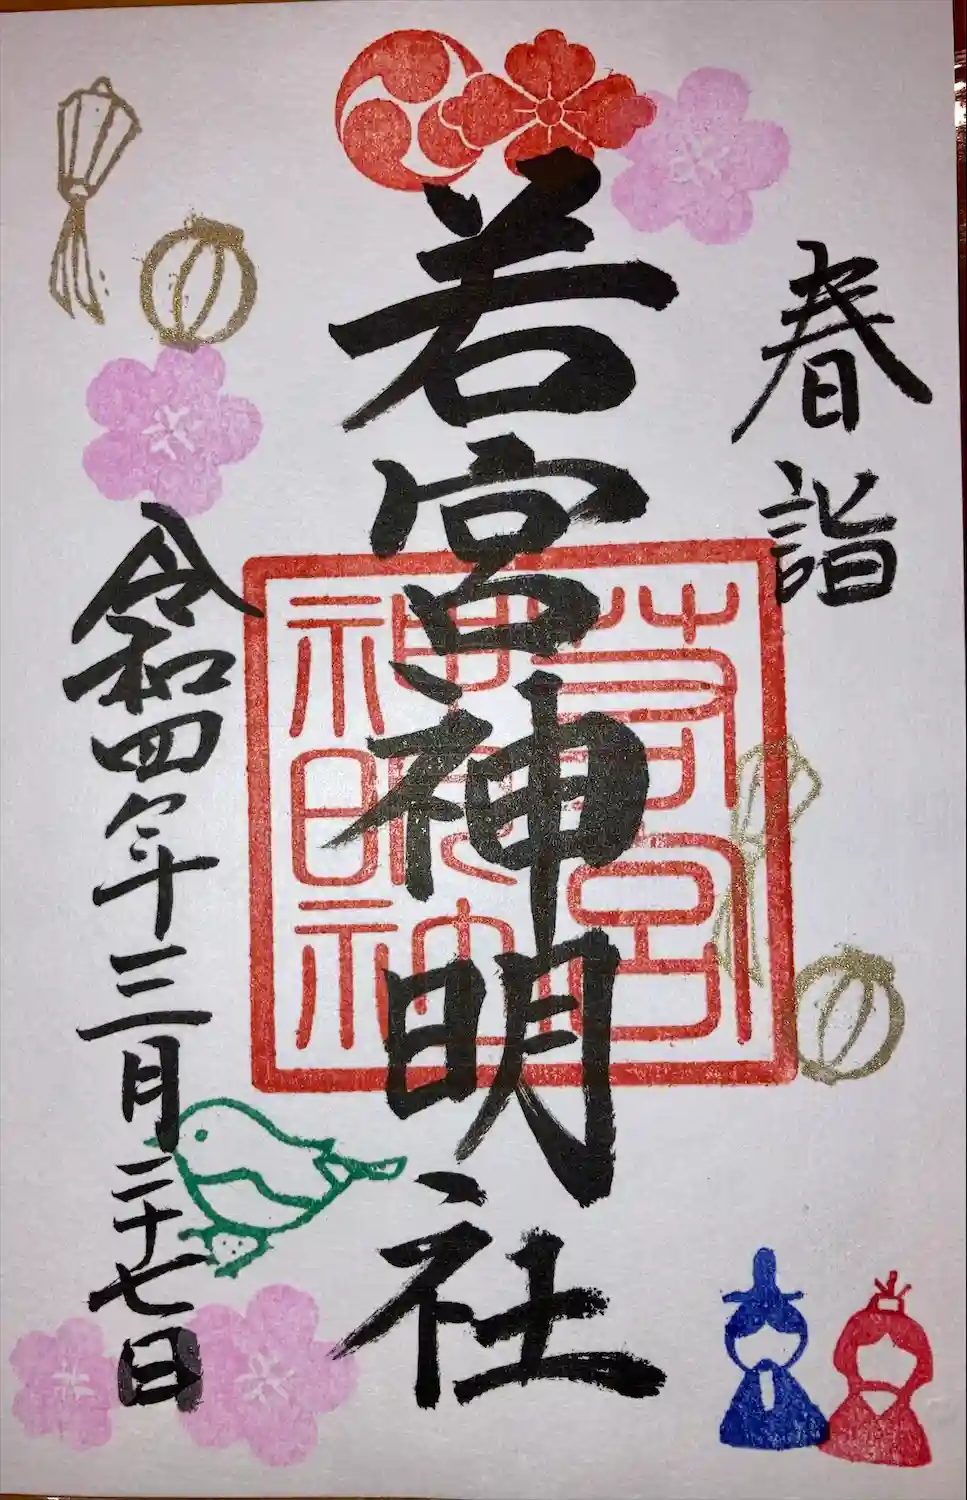 春詣
若宮神明社
令和四年三月二十七日
若宮
神明社